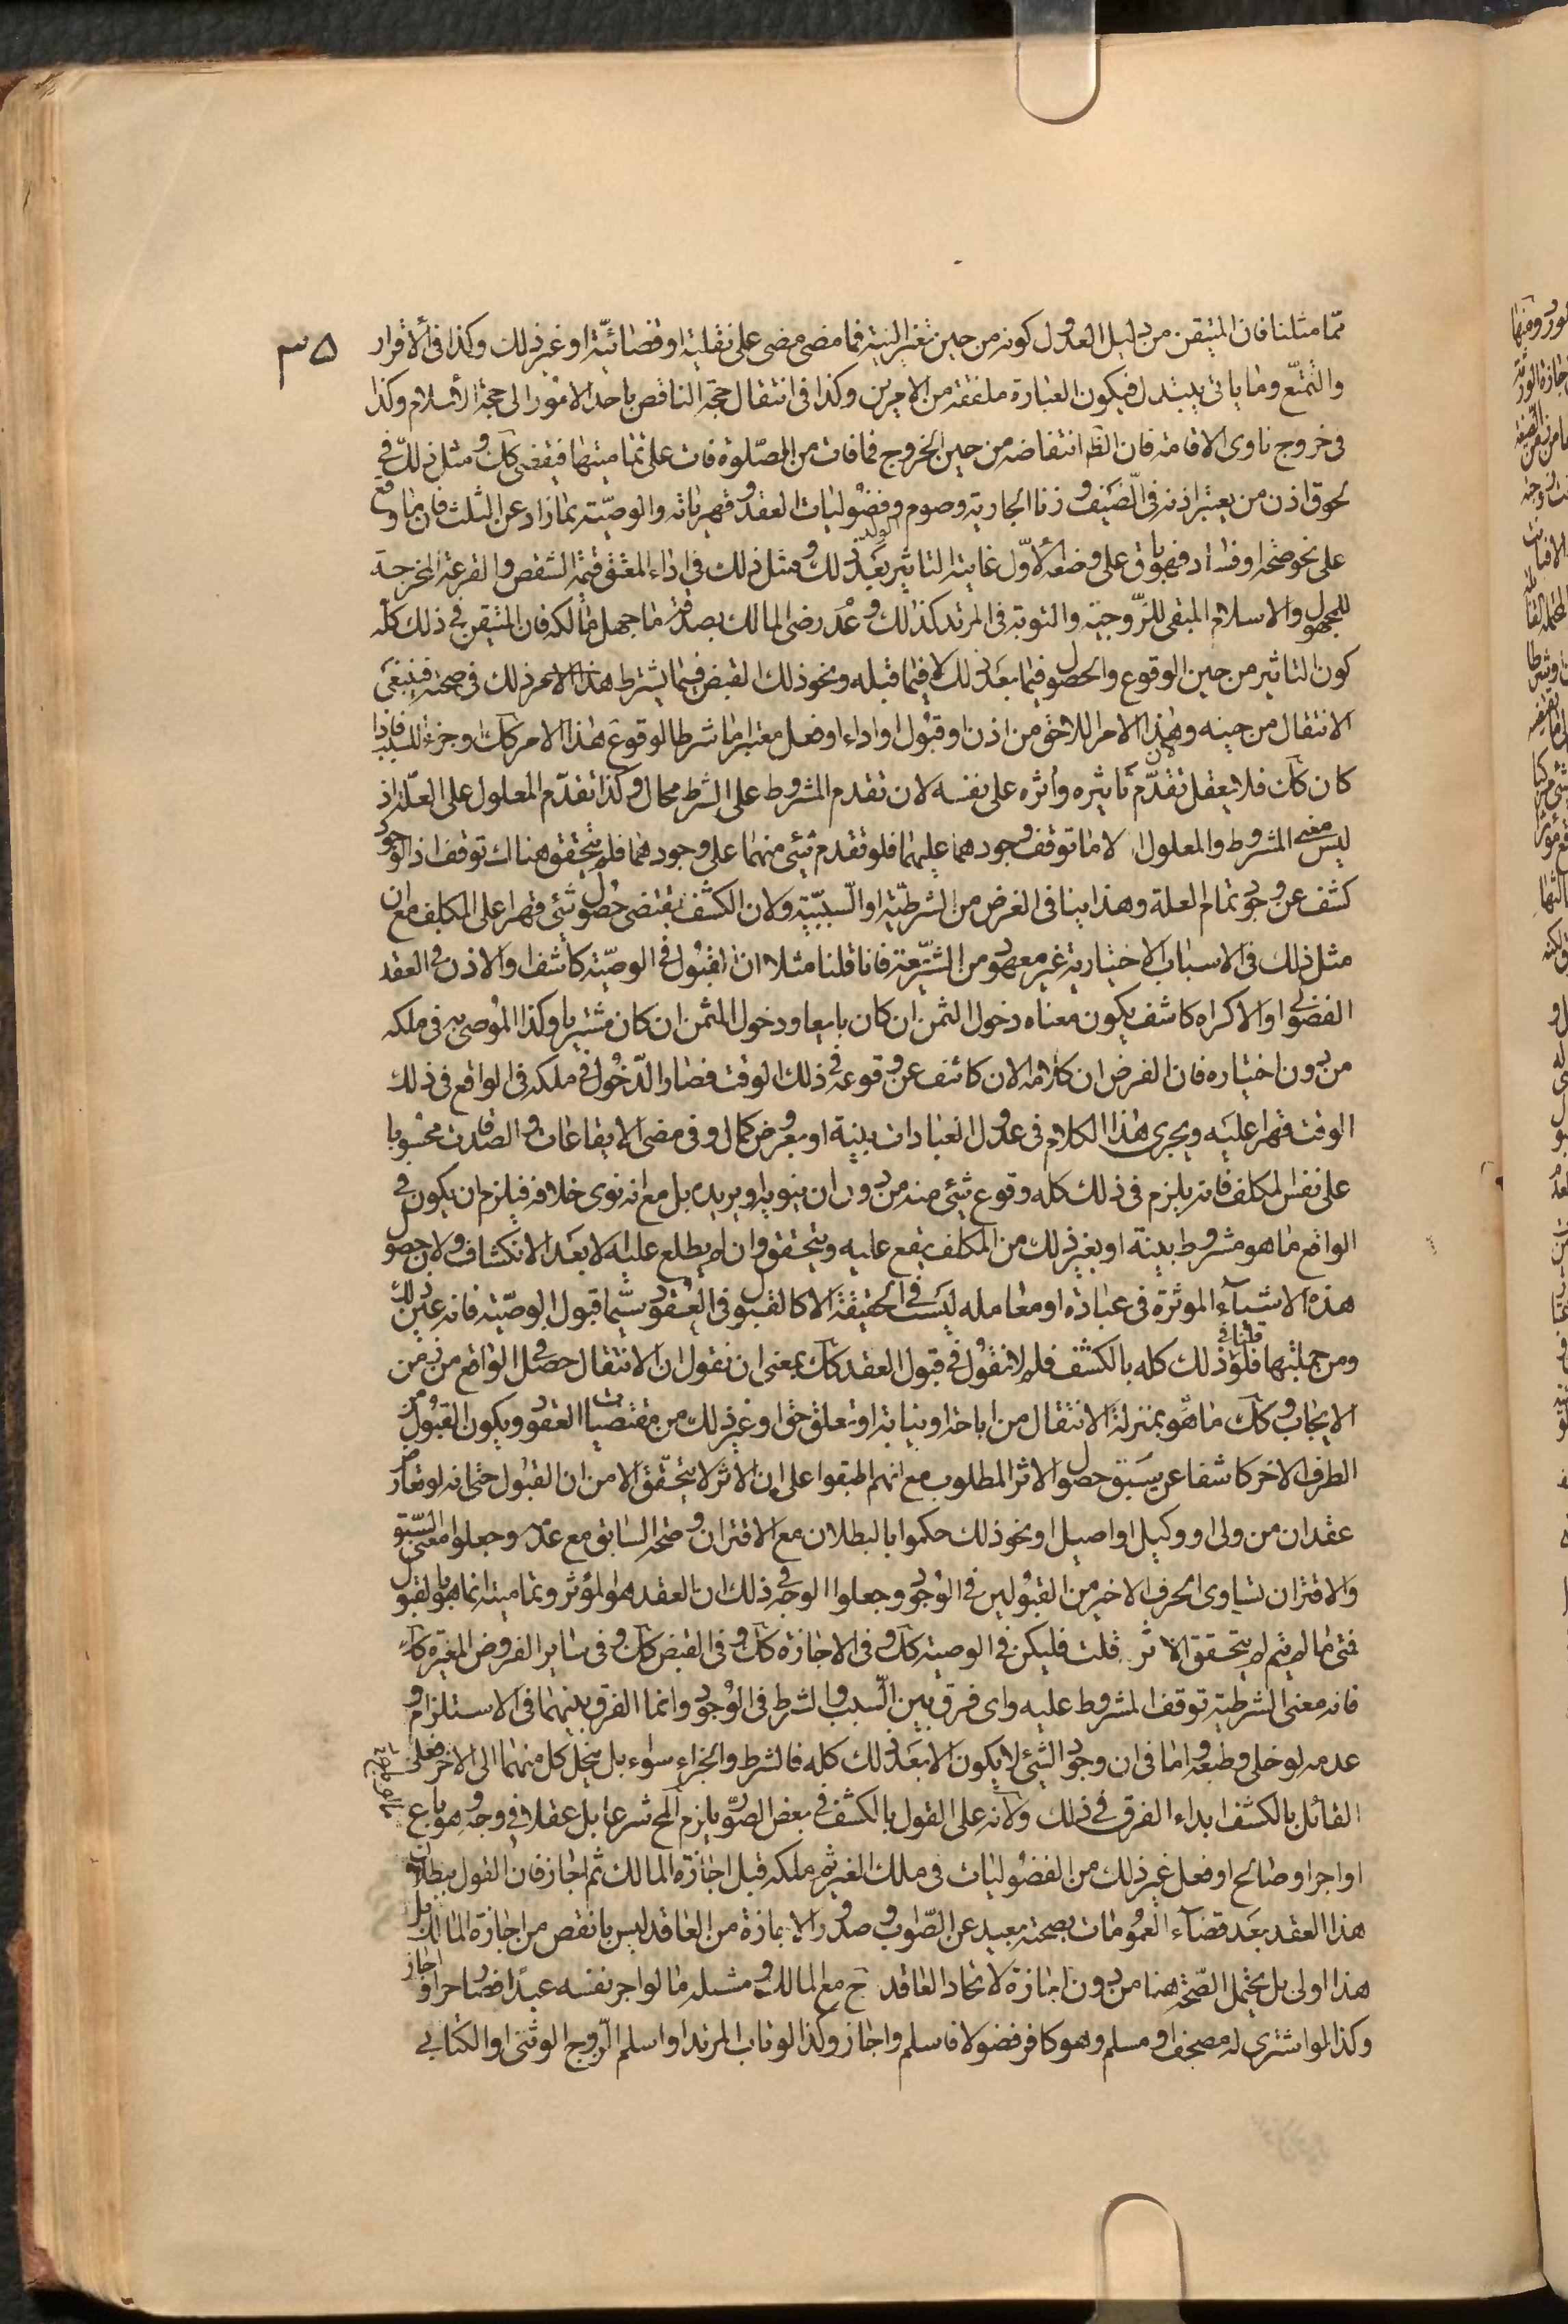 ممّا مثلنا فان المتيقن من دليل العدول كونه من حين تغير النية فما مضى مضى على نفلية او قضائيّة او غير ذلك وكذا في الافراد
٣٥
والتمتّع وما ياتي به يتبدل فيكون العبارة ملفقة من الامرين وكذا في انتقال حجة الناقص باحد الامور الى حجة الأسلام وكذا
في خروج ناوى الاقامة فان الظ انتقاضه من حين الخروج فما فات من الصّلوة فات على تماميتها فيقضى كك ومثل ذلك في
لحوق اذن من يعتبر اذنه في الضيف وزنا الجارية وصوم الولد وفضوليات العقود وقهرياته والوصيّة بما زاد عن الثلث فان ما وقع
على نحو صحة او فساد فهو باق على وضعه الأوّل غاية التاثير بعد ذلك ومثل ذلك في اداء المعتق قيمة الشقص والقرعة المخرجة
للمجهول والاسلام المبقى للزّوجية والتوبة في المرتد كذلك وعدر رضى المالك بصدقة ما جهل مالكه فان المتيقن في ذلك كله
كون التاثير من حين الوقوع والحصول فيما بعد ذلك لا فيما قبله ونحو ذلك القبض فيما يشترط هذا الامر ذلك في صحته فينبغى
الانتقال من حينه وهذا لان الامر اللاحق من اذن او قبول او اداء او فعل معتبر اما شرط الوقوع هذا الامر كك او جزء للسبب فاذا
كان كك فلا يعقل تقدّم تاثيره واثره على نفسه لان تقدم المشروط على الشرط محال وكذا تقدّم المعلول على العلّة اذ
ليس معنى المشروط والمعلول الا ما توقف وجودهما عليهما فلو تقدم شئ منهما على وجودهما فلم يتحقق هناك توقف اذ الوجود
كشف عن وجود تمام العلة وهذا ينافى الغرض من الشرطيّة او السّببيّة ولان الكشف يقتضى حصول شئ قهرا على المكلف مع ان
مثل ذلك في الاسباب الاختيارية غير معهود من الشّريعة فانا قلنا مثلا ان القبول في الوصيّة كاشف او الاذن في العقد
الفضولى او الاكراه كاشف يكون معناه دخول الثمن ان كان بايعا ودخول المثمن ان كان مشتريا وكذا الموصى به في ملكه
من دون اختياره فان الفرض ان كلامه الان كاشف عن وقوعه في ذلك الوقت فصار الدّخول في ملكه في الواقع في ذلك
الوقت قهرا عليه ويجرى هذا الكلام في عدول العبادات بنية او بعروض كمال وفي مضى الايقاعات والصدقات محسوبا
على نفس المكلف فانه يلزم في ذلك كله وقوع شئ منه من دون ان ينويه او يريده بل مع انه نوى خلافه فيلزم ان يكون في
الواقع ما هو مشروط بنية او بغير ذلك من المكلف يقع عليه ويتحقق وان لم يطلع عليه الا بعد الانكشاف ولان حصول
هذه الاشياء الموثرة في عبادة او معاملة ليست في الحقيقة الا كالقبول في العقود سيّما قبول الوصيّة فانه عين ذلك
ومن جملتها فلو قلنا في ذلك كله بالكشف فلم لا نقول في قبول العقد كك بمعنى ان نقول ان الانتقال حصل في الواقع من زمن
الايجاب وكك ما هو بمنزلة الانتقال من اباحة او نيابة او تعلق حق او غير ذلك من مقتضيات العقود ويكون القبول من
الطرف الاخر كاشفا عن سبق حصول الاثر المطلوب مع انهم اطبقوا على ان الاثر لا يتحقق الا من ان القبول حتى انه لو تعارض
عقدان من ولى او وكيل او اصيل او نحو ذلك حكموا بالبطلان مع الاقتران وصحة السابق مع عدمه وجعلوا معنى السّبق
والاقتران تساوى الحرف الاخير من القبولين في الوجود وجعلوا الوجه في ذلك ان العقد هو المؤثر وتماميته انما هو بالقبول
فمتى ما لم يتم لم يتحقق الاثر قلت فليكن في الوصية كك وفي الاجازة كك وفي القبض كك وفي ساير الفروض المغيرة كك
فانه معنى الشرطية توقف المشروط عليه واى فرق بين السّبب والشرط في الوجود وانما الفرق بينهما في الاستلزام و
عدمه لو خلى وطبعه واما في ان وجود الشئ لا يكون الا بعد ذلك كله فالشرط والجزاء سواء بل ينحل كل منهما الى الاخر فعلى
القائل بالكشف ابداء الفرق في ذلك ولانه على القول بالكشف في بعض الصور يلزم المح شرعا بل عقلا في وجه وهو ما لو باع
او اجر او صالح او فعل غير ذلك من الفضوليات في ملك الغير ثم ملكه قبل اجازة المالك ثم اجاز فان القول ببطلان
هذا العقد بعد قضاء العمومات بصحته بعيد عن الصّواب وصدور الاجازة من العاقد ليس بانقص من اجازة المالك بل
هذا اولى بل يحتمل الصّحة هنا من دون اجازة لاتحاد العاقد ح مع المالك ومثله ما لو اجر نفسه عبدا فصار حرا واجاز
وكذا لو اشترى له مصحف او مسلم وهو كافر فضولا فاسلم واجاز وكذا لو تاب المرتد او اسلم الزوج الوثنى او الكتابي